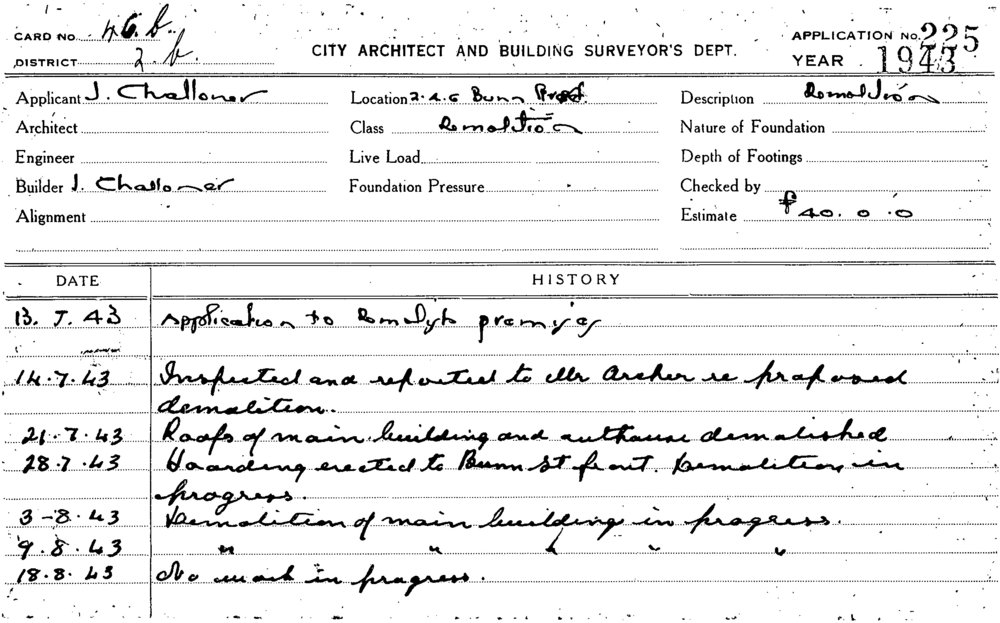 CARD NO. 46.b.
DISTRICT 2.b.
CITY ARCHITECT AND BUILDING SURVEYOR'S DEPT.
APPLICATION NO. 225
YEAR 1943
Applicant J. Challoner Location 2.4.6 Bunn Description Demolition
Architect Class Demolition Nature of Foundation
Engineer Live Load Depth of Footings
Builder J. Challoner Foundation Pressure Checked by
Alignment Estimate £40.0.0
DATE HISTORY
13.7.43 Application to Demolish premises
14.7.43 Inspected and reported to Mr Archer re proposed
demolition.
21.7.43 Roofs of main building and outhouse demolished
28.7.43 Hoarding erected to Bunn St front. Demolition in
progress.
3-8.43 Demolition of main building in progress.
9.8.43 " " " " "
18.8.43 No work in progress.